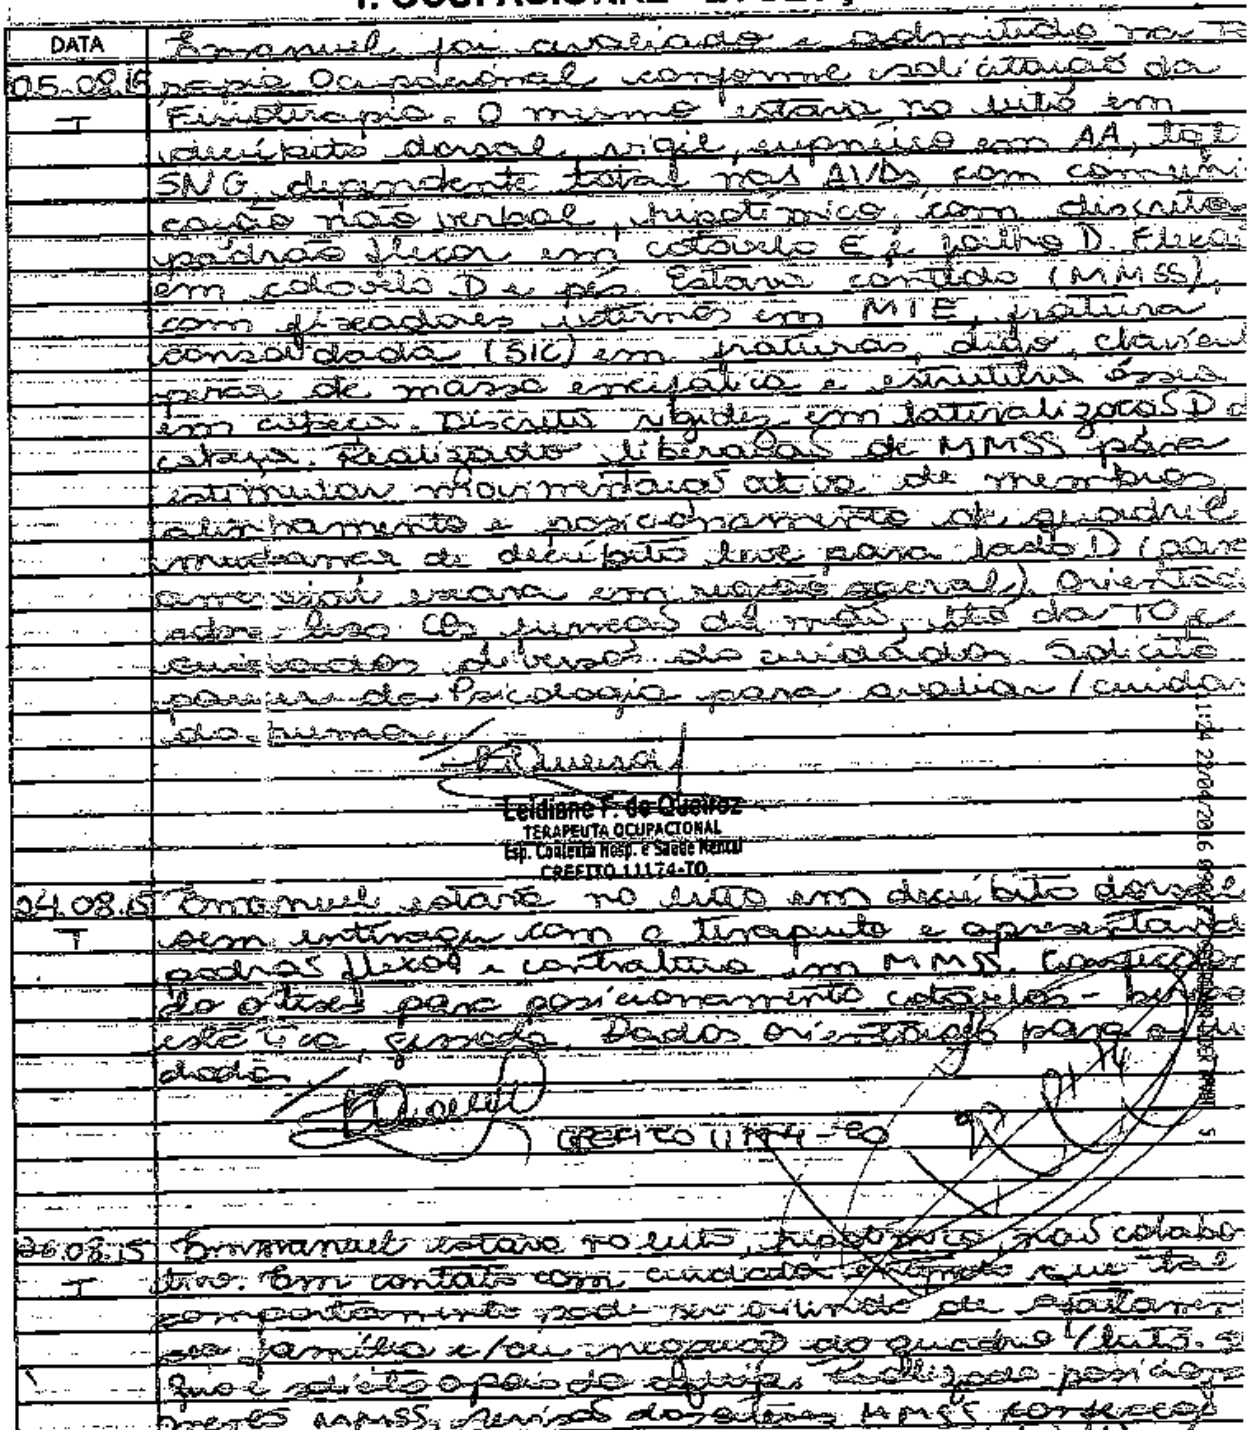 T. OCUPACIONAL
DATA
Emanuel foi avaliado e admitido na Te
05.08.15 rapia Ocupacional conforme solicitação da
T Fisioterapia. O mesmo estava no leito em
decúbito dorsal, vigil, eupneico em AA,
SNG, dependente total nas AVDs com comuni
cação não verbal, hipotímico, com discreto
padrão flexor em cotovelo E e joelho D.
em cotovelo D e pés. Estava contido (MMSS),
com fixadores internos em MIE, fratura
consolidada (SIC) em fraturas, dedo,
perda de massa encefálica e estrutura óssea
em cabeça. Discreta rigidez em lateralização D d
cabeça. Realizado liberação de MMSS para
estimular movimentação ativa de membros,
alinhamento e posicionamento de quadril
mudança de decúbito leve para lado D (para
escara em região sacral). Orientad
da TO e
cuidados diversos do cuidador. Solicito
parecer da Psicologia para avaliar / cuidar
do humor.
Leidiane F. de Queiroz
TERAPEUTA OCUPACIONAL
Esp. Contexto Hosp. e Saúde Mental
CREFITO 11174-TO
11:24 22/04/2016
24.08.15 Emanuel estava no leito em decúbito dorsal
T sem interagir com o terapeuta e apresentand
padrão flexor e contratura em MMSS. Confeccion
do órtese para posicionamento cotovelos -
estática gessada. Dadas orientações para o cui
dador
CREFITO 11174-TO
26.08.15 Emmanuel estava no leito, hipotímico, não colabo
T tivo. Em contato com cuidador que tal
comportamento pode ser oriundo de
da família e/ou negação do quadro / luto.
solicito apoio da equipe. Realizado posiciona
mento MMSS, revisão das órteses MMSS